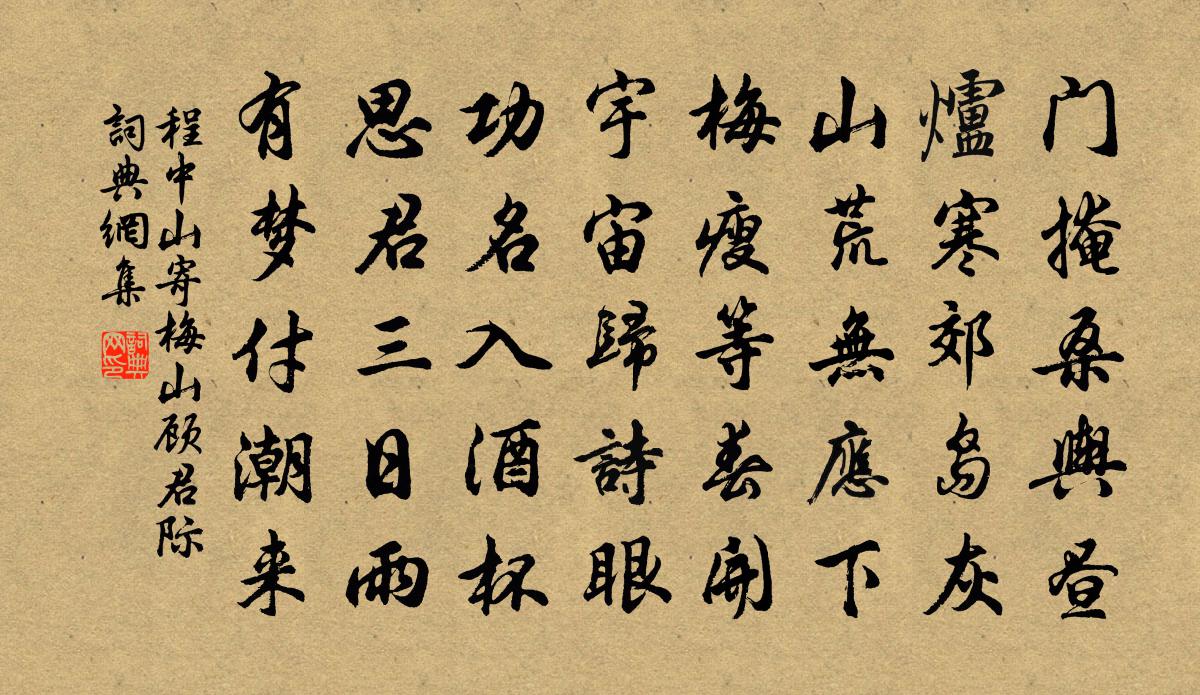 门掩桑舆昼
爐寒郊岛灰
山荒無應下
梅瘦等春開
宇宙歸詩眼
功名入酒杯
思君三日雨
有梦付潮来
程中山寄梅山顾君际
詞典網集
詞典网印